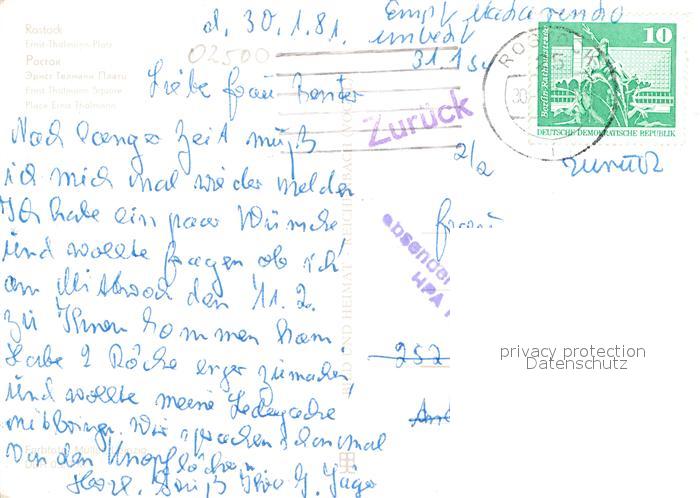 Rostock
Ernst-Thälmann-Platz
Росток
Эрнст Тельман Платц
Ernst Thälmann Square
Place Ernst Thälmann
02500
d. 30.1.81.
Empf
unbek
31.1.
Zurück
10
Berlin
DEUTSCHE DEMOKRATISCHE REPUBLIK
2/2
zurück
Liebe Frau
Nach langer Zeit muß
ich mich mal wieder melden
Ich habe ein paar Wünsche
und wollte fragen ob ich
am Mittwoch den 11.2.
zu Ihnen kommen kann
Habe 2 Röcke enger zumachen
und wollte meine Lederjacke
mitbringen. Wir sprachen schon mal
von den Knopflöchern
Herzl. Gruß Ihre G. Jäger
Frau
absender
252
BILD UND HEIMAT REICHENBACH
privacy protection
Datenschutz